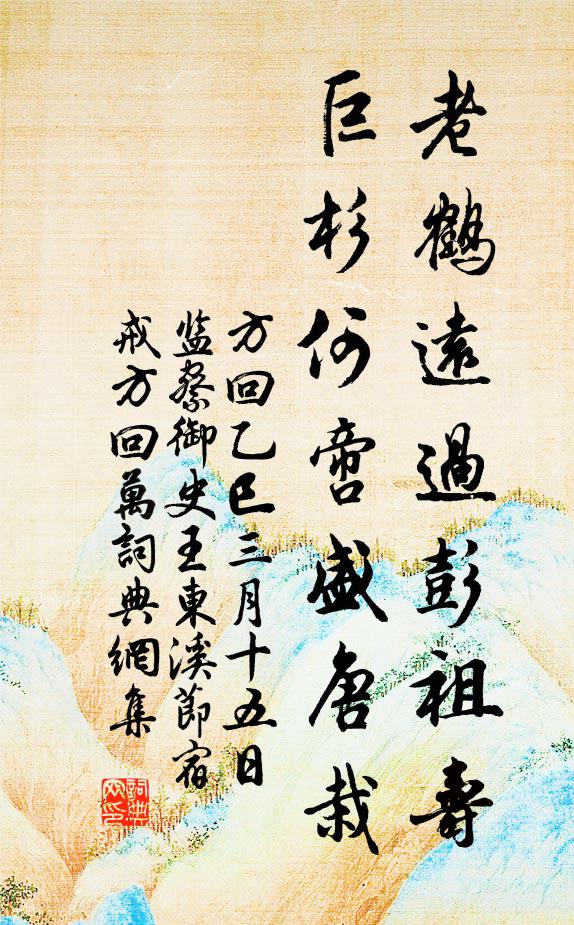 老鶴遠過彭祖壽
巨杉何啻盛唐栽
方回乙巳三月十五日
監察御史王東溪節宿
戒方回萬詞典網集
詞典網印